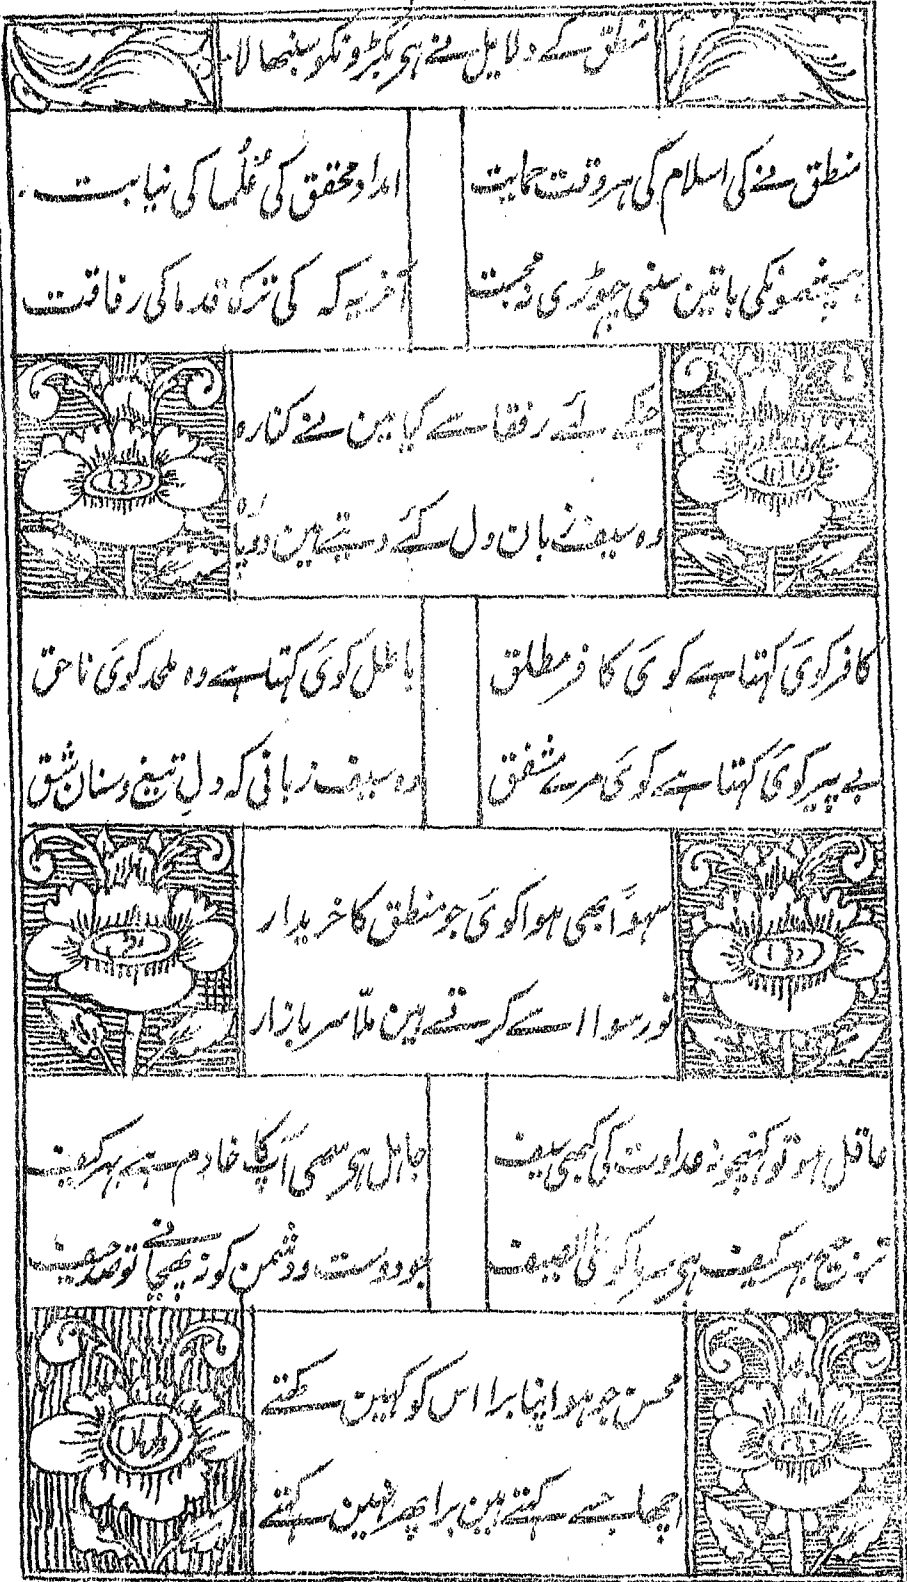 منطق کے دلایل نے ہی بگڑونکو سنبھالا
منطق نے کی اسلام کی ہر وقت حمایت
امداد محقق کی عُلَما کی نیابت
ہمچشمونکی باتین سنی چھوڑی نہ محبت
آخر یہ کہ کی ترک قدما کی رفاقت
جنکے لئے رفقا سے کیا مین نے کنارہ
وہ سیف زبان دل کئے دیتے ہین دوپارہ
کافر کوئی کہتا ہے کوئی کافر مطلق
باطل کوئی کہتا ہے وہ ملحد کوئی ناحق
بے پیر کوئی کہتا ہے کوئی مرے مشفق
وہ سیف زبانی کہ دلِ تیغ و سنان شق
سہواً بھی ہوا کوئی جو منطق کا خریدار
رسوا اسے کرتے ہین ملّا سر بازار
عاقل ہو تو کھینچو نہ عداوت کی کبھی سیف
جاہل ہی سہی آپکا خادم ہے بہر کیف
ترجیح بہر کیف ہی
جو دوست و دشمن کو نہ پہچانے تو صد حیف
محسن جو ہو اپنا برا اس کو نہین کہتے
اچھا جسے کہتے ہین برا پھر نہین کہتے